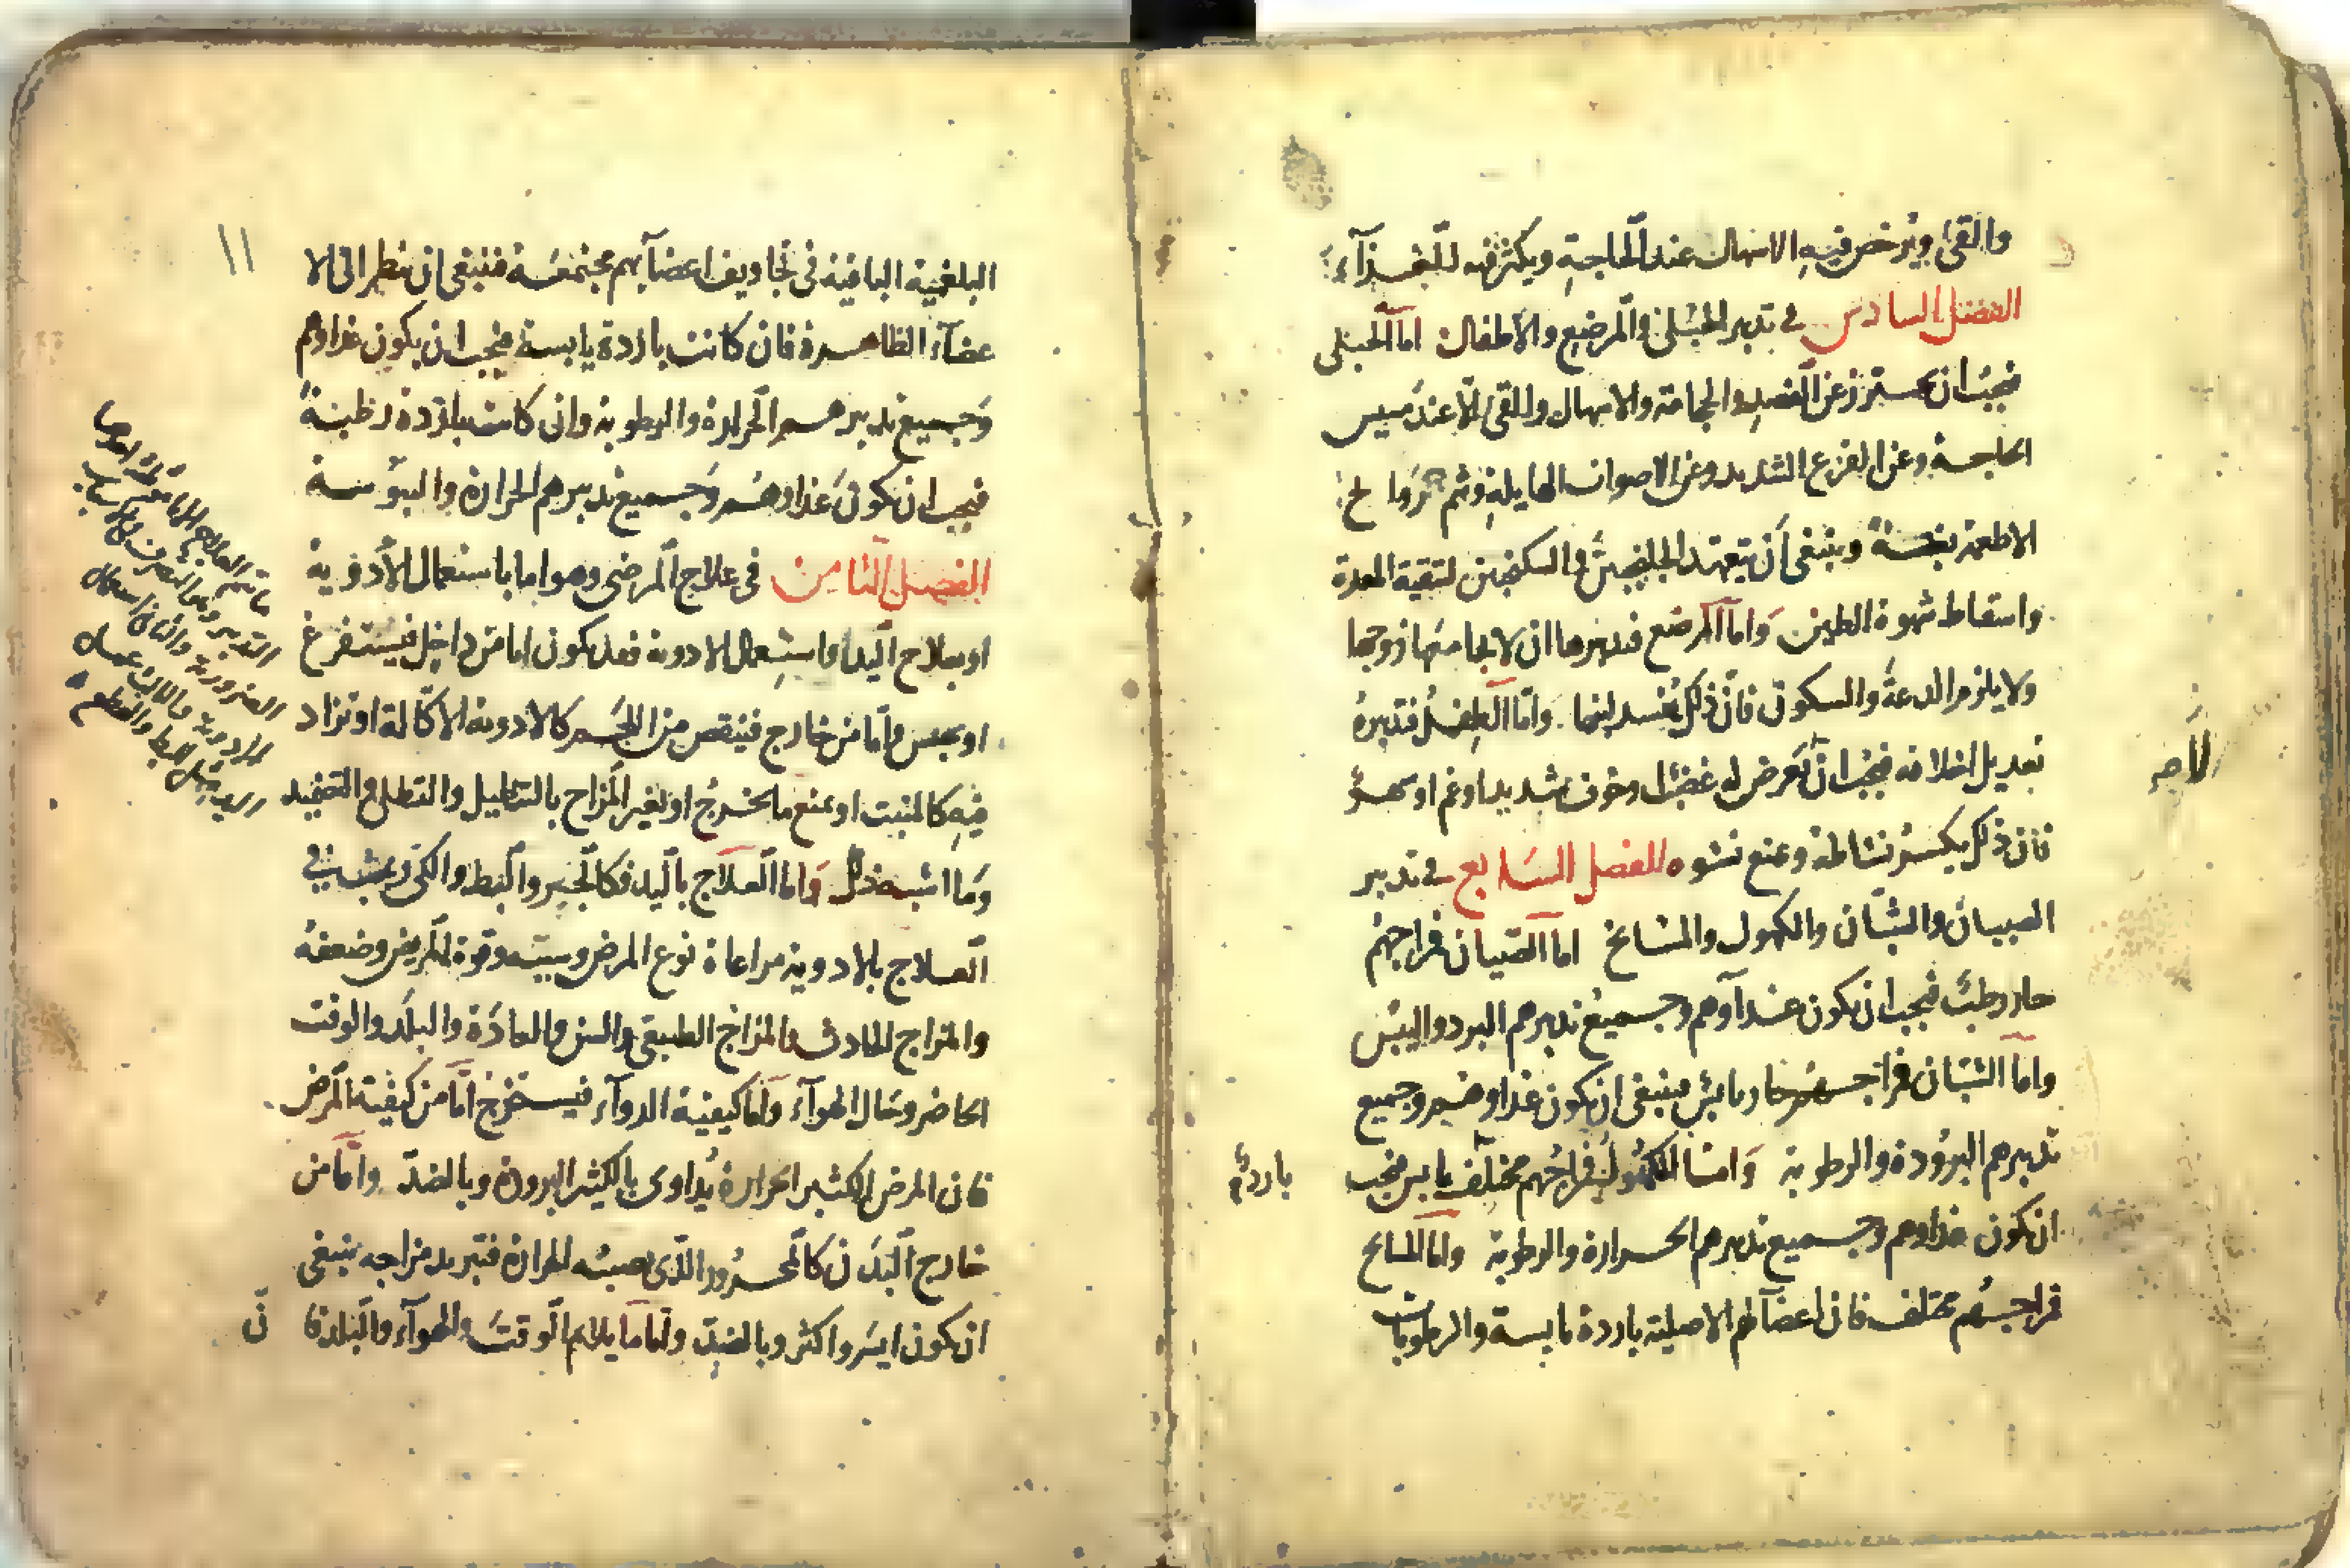 والقئ ويرخص فيه الاسهال عند الحاجة ويكثر فيه للغذآء
الفصل السادس في تدبير الحبلى والمرضع والاطفال اما الحبلى
فيجب ان تحترز عن الفصد والحجامة والاسهال والقئ الا عند مسيس
الحاجة وعن الفزع الشديد وعن الاصوات الهايلة وشم روا يح
الاطعمة بغتة وينبغي ان يتعهد الجلنجبين والسكنجبين لتنقية المعدة
واسقاط شهوة الطين واما المرضع فتدبيرها ان لا يجامعها زوجها
ولا يلزم الدعة والسكون فان ذلك يفسد لبنها واما الطفل فتدبيره
تعديل اخلاقه فيجب ان يعرض له غضب او خوف شديد او غم او سهر
لا
فان ذلك يكسر نشاطه ويمنع نشوه الفصل السابع في تدبير
الصبيان والشبان والكهول والمشايخ اما الصبيان فمزاجهم
حار رطب فيجب ان يكون غذآوهم وجميع تدبيرهم البرد واليبس
واما الشبان فمزاجهم حار يابس فينبغي ان يكون غذاوهم وجميع
تدبيرهم البرودة والرطوبة واما الكهول فمزاجهم مختلف يابس فيجب
بارد
ان يكون غذاوهم وجميع تدبيرهم الحرارة والرطوبة واما المشايخ
فمزاجهم مختلف فان اعضآهم الاصلية باردة يابسة والرطوبات
١١
البلغمية الباقية في تجاويف اعضآيهم مجتمعة فينبغي ان ينظر الى الا
عضآء الظاهرة فان كانت باردة يابسة فيجب ان يكون غذاوهم
وجميع تدبيرهم الحرارة والرطوبة وان كانت باردة رطبة
فيجب ان يكون غذاوهم وجميع تدبيرهم الحرارة واليبوسة
الفصل الثامن في علاج المرضى وهو اما باستعمال الأدوية
او بعلاج اليد اما استعمال الادوية فقد يكون اما من داخل فيستفرغ
او يحبس واما من خارج فينقص من الجسم كالادوية الاكالة او تزاد
فيه كالمنبت او يمنع ما يخرج او يغير المزاج بالتحليل والتطلي والتضميد
وما اشبه ذلك واما العلاج باليد فكالجبر والبط والكي ويجب في
العلاج بالادوية مراعاة نوع المرض وسببه وقوة المريض وضعفه
والمزاج الحادث والمزاج الطبيعي والسن والعادة والبلد والوقت
الحاضر وحال الهوآء واما كيفية الدوآء فيستخرج اما من كيفية المرض
فان المرض الكثير الحرارة يداوى بالكثير البرودة وبالضد واما من
خارج البدن كالمحرور الذي يصيبه الحرارة فتبريد مزاجه ينبغي
ان يكون ايسر واكثر وبالضد واما ما يلايم الوقت والهوآء والبلد فا ن